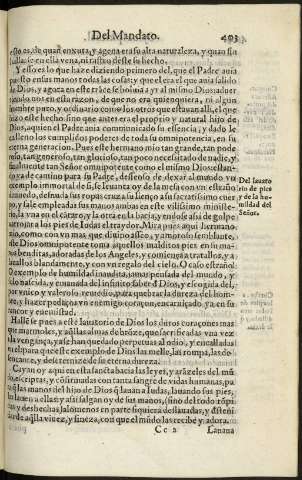 Del Mandato. 403
esto es, de quan enxuta, y agena era su alta naturaleza, y quan sin
hallarse en ella vena, ni rastro deste su hecho.
Y esto es lo que haze diziendo primero del, que el Padre auia
puesto en sus manos todas las cosas: y que el era el que auia salido
de Dios, y agora en este trãce se boluia a y al mismo Dios: aduer
tiendo nos en esta razon, de que no era quien quiera, ni algun
hombre puro, y ordinario como los otros que estauan alli, el que
hizo este hecho: sino que antes era el proprio y natural hijo de
Dios, a quien el Padre auia communicado su essencia; y dado le
en lleno los cumplidos poderes de toda su omnipotencia, en su
eterna generacion. Pues este hermano mio tan grande, tan pode
roso, tan generoso, tan glorioso, tan poco necessitado de nadie, y
finalmente tan Señor omnipotente como el mismo Dios: estan-
do ya de camino para su Padre, desseoso de dexar al mundo vn
exemplo immortal de si, se leuanta oy de la mesa con vn estraño
denuedo, desnuda sus ropas, cruza su lienço a su sacratissimo cuer
po, y assi empleadas sus manos ambas en este vilissimo ministe-
rio, la vna en el cantaro y la otra en la bazia, y en dose assi de golpe
arroja se a los pies de Iudas el traydor. Mira pues aqui hermano
mio, como con vn mas que diuino asseo, y amoroso semblante,
este Dios omnipotente toma aquellos malditos pies en su ma-
nos benditas, adoradas de los Angeles, y comiença a tratallos, y a
lauallos blandamente, y con vn regalo del cielo. O caso estraño!
O exemplo de humildad inaudita, jamas pensada del mundo, y
solo nascida, y emanada del infinito saber de Dios, y escogida del,
por vnico y valeroso remedio, para quebrar la dureza del hom-
bre, y hazer pedaços vn enemigo coraçon, encarniçado ya en su
rancor y enemistad.
Hallese pues a este lauatorio de Dios los duros coraçones mas
que marmoles, y a estas almas de bronze, que sacrificadas vna vez
a la vengança, ya se han quedado perpetuas al odio, y encalladas
en el para que este exemplo de Dios las melle, las rompa, las de-
sencante, y destemnize de su eterna dureza.
Cayan oy aqui en esta sancta bacia las leyes, y aranzeles del mũ
do, escriptas, y cõfirmadas con tanta sangre de vidas humanas, pa
ra q̃ las manos del hijo de Dios q̃ lauan a Iudas, buando sus pies,
las lauen a ellas: y assi salgan oy de sus manos, (sino del todo rõpi
das y desbechas) a lo menos en parte siquiera deslauadas, y desteñi
das de aq̃lla vivez, y fineza, con que el mũdo las recibe y adora.
Del lauato
rio de pies
y de la hu-
mildad del
Señor.
Cc 2 Lauana